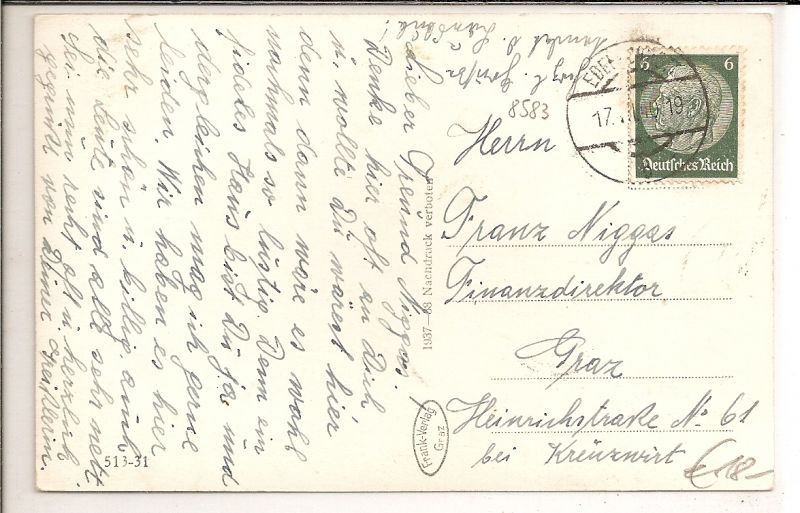 Lieber Freund Niggas.
Denke hier oft an Dich
u. wollte Du wärest hier
denn dann wäre es wohl
nochmals so lustig. Denn ein
fideles Haus bist Du ja und
dergleichen mag ich gerne
leiden. Wir haben es hier
sehr schön u. billig. auch
die Leute sind alle sehr nett
Sei nun recht oft u. herzlich
gegrüßt von Deiner
1937-38 Nachdruck verboten
Frank-Verlag
Graz
513-31
8583
17. 19
6 6
Deutsches Reich
Herrn
Franz Niggas
Finanzdirektor
Graz
Heinrichstraße No 61
bei Kreuzwirt
€ 18-